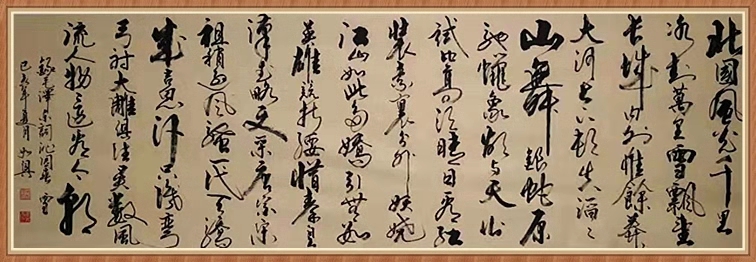 北國風光千里
冰封萬里雪飄望
長城内外惟餘莽
大河上下頓失滔〻
山舞銀蛇原
馳蠟象欲與天公
試比高須晴日看紅
裝素裹分外妖嬈
江山如此多嬌引無數
英雄競折腰惜秦皇
漢武略文采唐宗宋
祖稍遜風騷一代天驕
成吉思汗只識彎
弓射大雕俱往矣數風
流人物還看今朝
錄毛澤東詞沁園春 雪
己亥年夏月